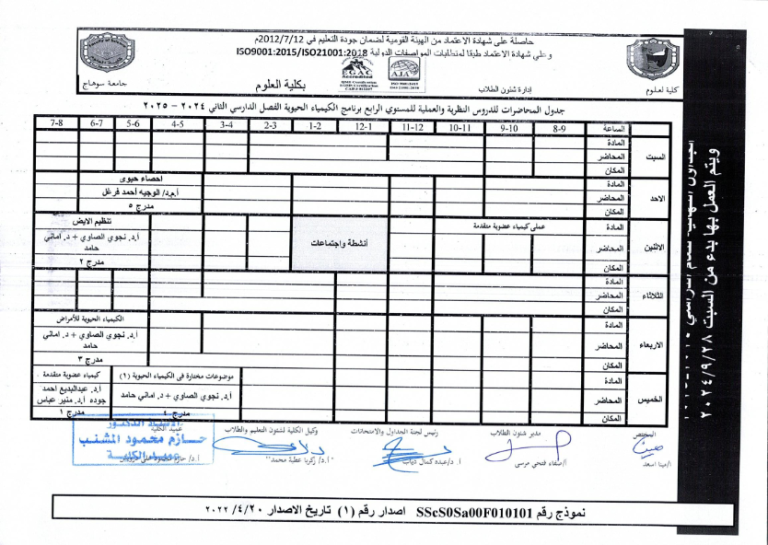 حاصلة على شهادة الاعتماد من الهيئة القومية لضمان جودة التعليم في 2012/7/12م
وعلى شهادة الاعتماد طبقا لمتطلبات المواصفات الدولية ISO9001:2015/ISO21001:2018
EGAC
AJA
كلية العلوم
إدارة شئون الطلاب
بكلية العلوم
جامعة سوهاج
جدول المحاضرات للدروس النظرية والعملية للمستوي الرابع برنامج الكيمياء الحيوية الفصل الدارسي الثاني ٢٠٢٤ - ٢٠٢٥
الساعة 8-9 9-10 10-11 11-12 12-1 1-2 2-3 3-4 4-5 5-6 6-7 7-8
السبت
المادة
المحاضر
المكان
الاحد
المادة
احصاء حيوى
المحاضر
أ.م.د/ الوجيه أحمد فرغل
المكان
مدرج ٥
الاثنين
المادة
عملى كيمياء عضوية متقدمة
أنشطة واجتماعات
تنظيم الايض
المحاضر
أ.د. نجوي الصاوي + د. اماني حامد
المكان
مدرج ٢
الثلاثاء
المادة
المحاضر
المكان
الاربعاء
المادة
الكيمياء الحيوية للأمراض
المحاضر
أ.د. نجوي الصاوي + د. اماني حامد
المكان
مدرج ٣
الخميس
المادة
موضوعات مختارة فى الكيمياء الحيوية (١)
كيمياء عضوية متقدمة
المحاضر
أ.د. نجوي الصاوي + د. اماني حامد
أ.د. عبدالبديع احمد
جوده أ.د. منير عباس
المكان
مدرج ١
المختص
مدير شئون الطلاب
رئيس لجنة الجداول والامتحانات
وكيل الكلية لشئون التعليم والطلاب
عميد الكلية
أ/مينا اسعد
أ/صفاء فتحي مرسى
أ.د/عبده كمال دياب
أ.د/ زكريا عطية محمد
الأستاذ الدكتور
حازم محمود المشنب
عميد الكلية
ويتم العمل بها بدء من السبت ٢٠٢٤/٩/٢٨
نموذج رقم SScS0Sa00F010101 اصدار رقم (١) تاريخ الاصدار ٢٠/٤/ ٢٠٢٢